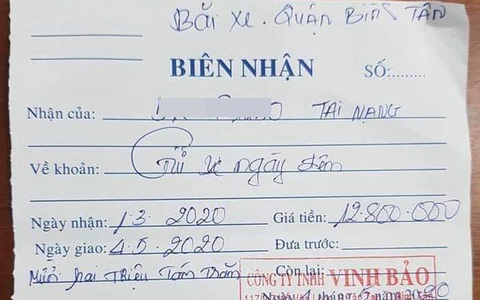 Bãi xe. Quận Bình TÂN
BIÊN NHẬN SỐ:........
Nhận của: TAI NẠNG
Về khoản: Gửi xe ngày đêm
Ngày nhận: 1.3.2020 Giá tiền: 12.800.000
Ngày giao: 4.5.2020 Đưa trước:
Mười hai Triệu Tám Trăm Còn lại:
CÔNG TY TNHH VINH BẢO
Ngày 4 tháng 5 năm 2020